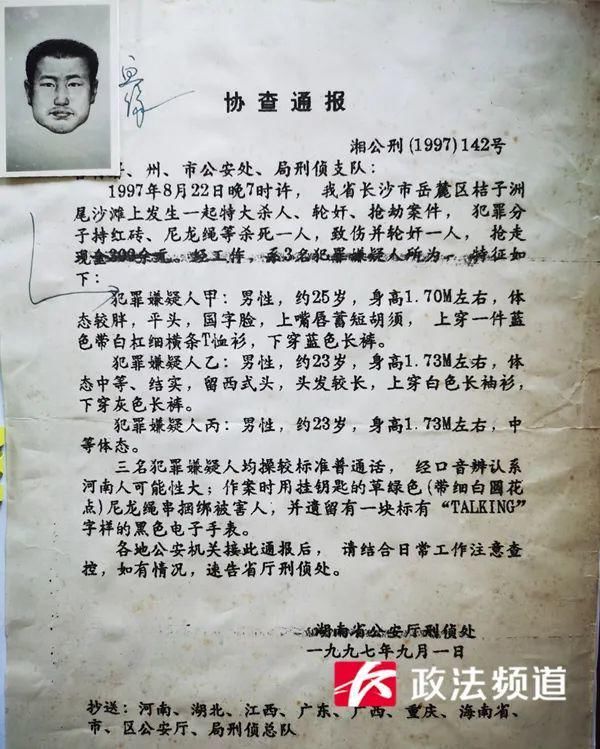 协查通报
湘公刑(1997)142号
、州、市公安处、局刑侦支队：
1997年8月22日晚7时许，我省长沙市岳麓区桔子洲
尾沙滩上发生一起特大杀人、轮奸、抢劫案件，犯罪分
子持红砖、尼龙绳等杀死一人，致伤并轮奸一人，抢走
现金300余元。经工作，系3名犯罪嫌疑人所为，特征如
下：
犯罪嫌疑人甲：男性，约25岁，身高1.70M左右，体
态较胖，平头，国字脸，上嘴唇蓄短胡须，上穿一件蓝
色带白杠细横条T恤衫，下穿蓝色长裤。
犯罪嫌疑人乙：男性，约23岁，身高1.73M左右，体
态中等、结实，留西式头，头发较长，上穿白色长袖衫，
下穿灰色长裤。
犯罪嫌疑人丙：男性，约23岁，身高1.73M左右，中
等体态。
三名犯罪嫌疑人均操较标准普通话，经口音辨认系
河南人可能性大；作案时用挂钥匙的草绿色(带细白圆花
点)尼龙绳串捆绑被害人，并遗留有一块标有“TALKING”
字样的黑色电子手表。
各地公安机关接此通报后，请结合日常工作注意查
控，如有情况，速告省厅刑侦处。
湖南省公安厅刑侦处
一九九七年九月一日
政法频道
抄送：河南、湖北、江西、广东、广西、重庆、海南省、
市、区公安厅、局刑侦总队